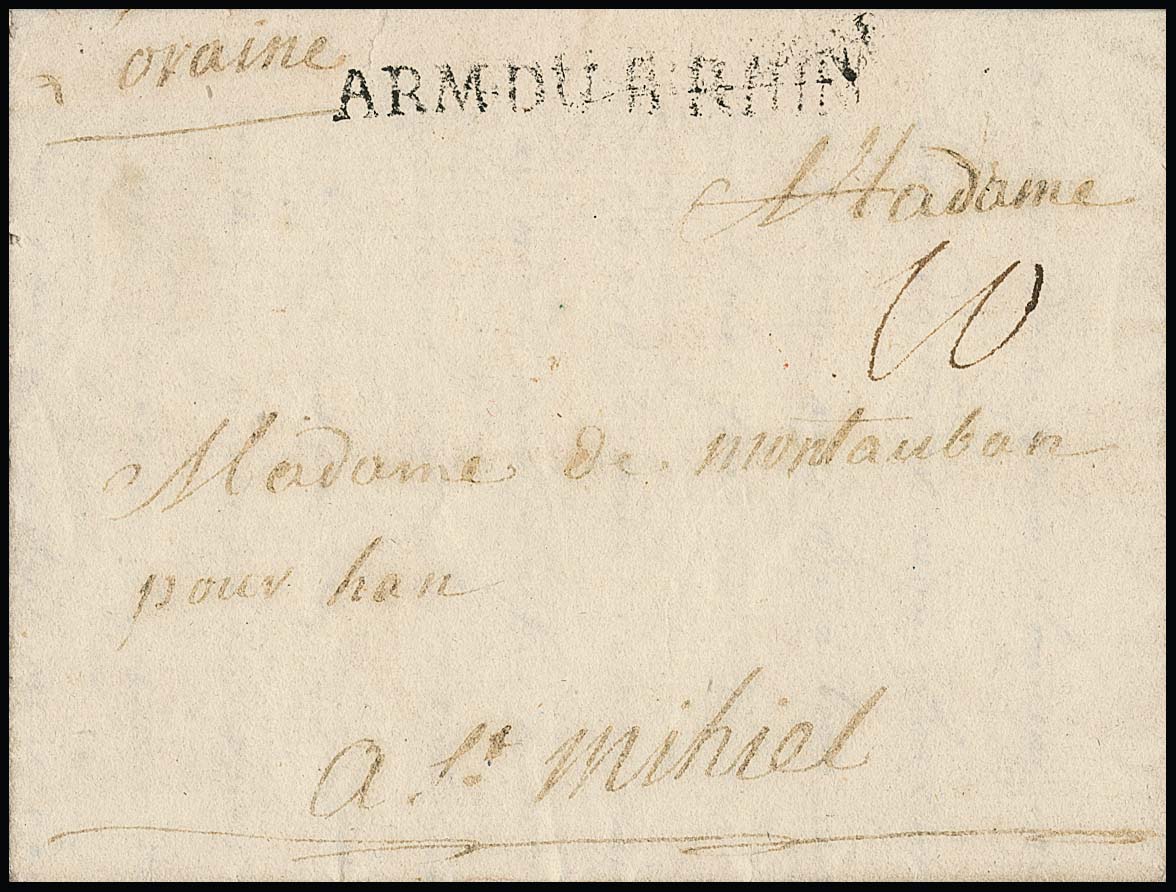 oraine
ARM·DU·B·RHIN
Madame
10
Madame de montauban
pour han
a st mihiel